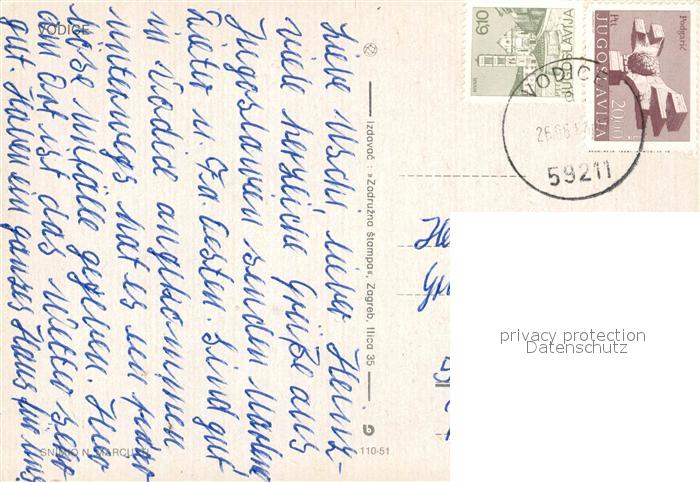 VODICE
Liebe Uschi, lieber Heinz-
viele herzliche Grüße aus
Jugoslawien senden
Dieter u. Fa. Sind gut
in Vodice angekommen
unterwegs hat es
böse Unfälle gegeben. Hier
am Ort ist das Wetter sehr
gut. Haben ein ganzes Haus für uns
SNIMIO N.
Izdavač: »Zadružna štampa«, Zagreb, Ilica 35
110-51
6,10
JUGOSLAVIJA
Podgarić
JUGOSLAVIJA
20,00
59211
He
Gr
privacy protection
Datenschutz